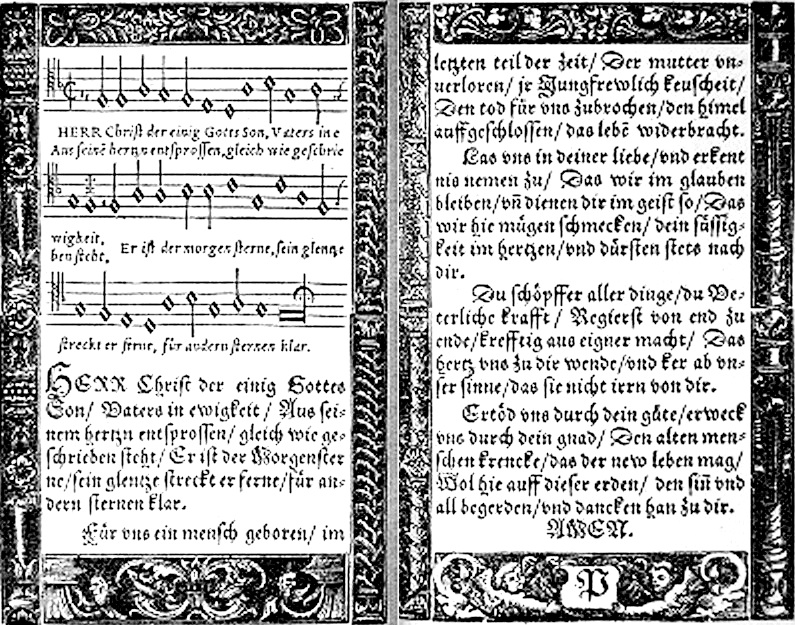 HERR Christ der einig Gotts Son, Vaters in e
Aus seinē hertzn entsprossen, gleich wie geschrie
wigkeit,
ben steht,
Er ist der morgen sterne, sein glentze
streckt er ferne, für andern sternen klar.
HERR Christ der einig Gottes
Son/ Vaters in ewigkeit/ Aus sei-
nem hertzn entsprossen/ gleich wie ge-
schrieben steht/ Er ist der Morgenster
ne/sein glentze streckt er ferne/für an-
dern sternen klar.
Für vns ein mensch geboren/ im
letzten teil der zeit/ Der mutter vn-
uerloren/ jr Jungfrewlich keuscheit/
Den tod für vns zubrochen/den himel
auffgeschlossen/ das lebē widerbracht.
Las vns in deiner liebe/vnd erkent
nis nemen zu/ Das wir im glauben
bleiben/vn̄ dienen dir im geist so/Das
wir hie mügen schmecken/ dein süssig-
keit im hertzen/vnd dürsten stets nach
dir.
Du schöpffer aller dinge/du Ve-
terliche krafft/ Regierst von end zu
ende/krefftig aus eigner macht/ Das
hertz vns zu dir wende/vnd ker ab vn-
ser sinne/das sie nicht irrn von dir.
Ertöd vns durch dein güte/erweck
vns durch dein gnad/ Den alten men-
schen krencke/das der new leben mag/
Wol hie auff dieser erden/ den sin̄ vnd
all begerden/vnd dancken han zu dir.
AMEN.
P